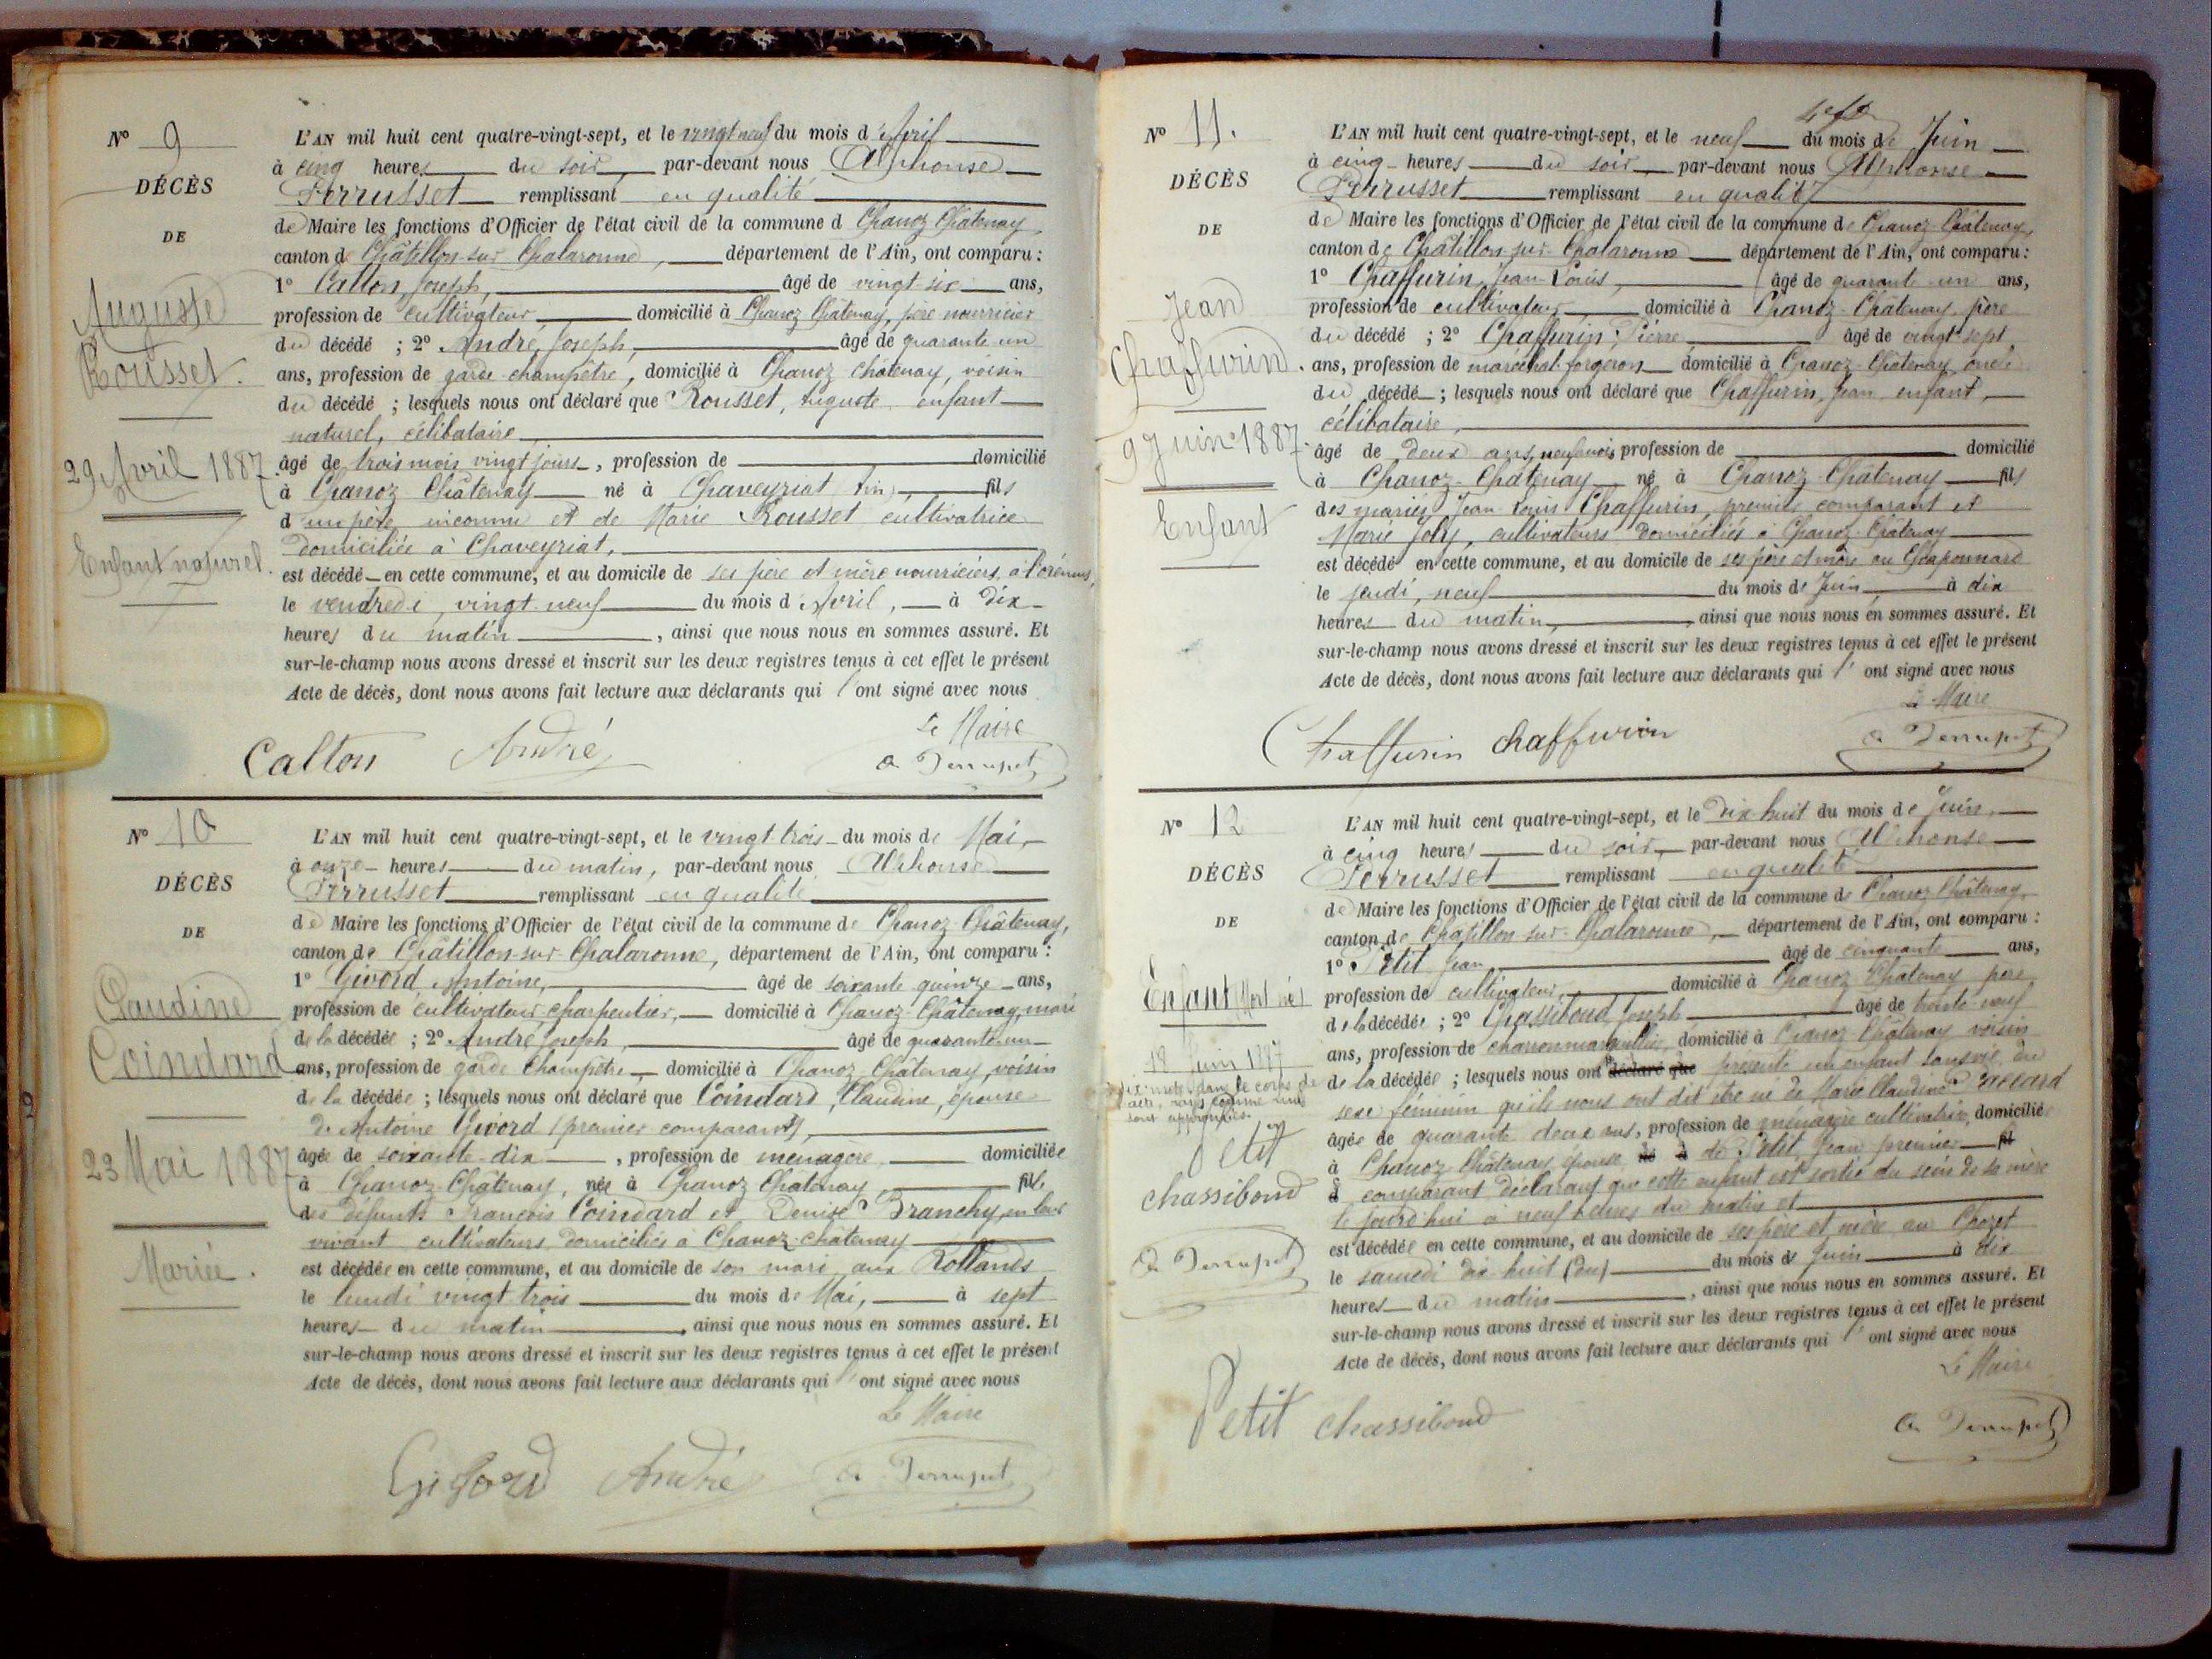 N° 9
DÉCÈS
DE
Auguste
Rousset.
29 Avril 1887
Enfant naturel.
L'AN mil huit cent quatre-vingt-sept, et le vingt neuf du mois d'Avril
à cinq heures du soir, par-devant nous Alphonse
Perrusset remplissant en qualité
de Maire les fonctions d'Officier de l'état civil de la commune d Chanoz Châtenay
canton de Châtillon-sur-Chalaronne, département de l'Ain, ont comparu :
1° Calton, Joseph, âgé de vingt-six ans,
profession de cultivateur, domicilié à Chanoz Châtenay, père nourricier
du décédé ; 2° André, Joseph, âgé de quarante un
ans, profession de garde champêtre, domicilié à Chanoz Châtenay, voisin
du décédé ; lesquels nous ont déclaré que Rousset, Auguste, enfant
naturel, célibataire,
âgé de trois mois vingt jours, profession de domicilié
à Chanoz-Châtenay né à Chaveyriat fils
d'un père inconnu et de Marie Rousset cultivatrice
domiciliée à Chaveyriat,
est décédé en cette commune, et au domicile de ses père et mère nourriciers,
le vendredi, vingt neuf du mois d'Avril, à dix
heures du matin, ainsi que nous nous en sommes assuré. Et
sur-le-champ nous avons dressé et inscrit sur les deux registres tenus à cet effet le présent
Acte de décès, dont nous avons fait lecture aux déclarants qui l'ont signé avec nous
Le Maire
Calton André A Perrusset
N° 10
DÉCÈS
DE
Claudine
Coindard
23 Mai 1887
Mariée.
L'AN mil huit cent quatre-vingt-sept, et le vingt trois du mois de Mai,
à onze heures du matin, par-devant nous Alphonse
Perrusset remplissant en qualité
de Maire les fonctions d'Officier de l'état civil de la commune de Chanoz-Châtenay,
canton de Châtillon-sur-Chalaronne, département de l'Ain, ont comparu :
1° Givord Antoine, âgé de soixante quinze ans,
profession de cultivateur charpentier, domicilié à Chanoz-Châtenay, mari
de la décédée ; 2° André Joseph, âgé de quarante-un
ans, profession de garde Champêtre domicilié à Chanoz Châtenay, voisin
de la décédée ; lesquels nous ont déclaré que Coindard, Claudine, épouse
de Antoine Givord (premier comparant),
âgée de soixante-dix, profession de ménagère domiciliée
à Chanoz-Châtenay, née à Chanoz Châtenay, fille
des défunts François Coindard et Denise Branchy, en leur
vivant cultivateurs domiciliés à Chanoz-Châtenay
est décédée en cette commune, et au domicile de son mari aux Rollands
le lundi vingt trois du mois de Mai, à sept
heures du matin, ainsi que nous nous en sommes assuré. Et
sur-le-champ nous avons dressé et inscrit sur les deux registres tenus à cet effet le présent
Acte de décès, dont nous avons fait lecture aux déclarants qui l'ont signé avec nous
Le Maire
Givord André A Perrusset
N° 11.
DÉCÈS
DE
Jean
Chaffurin.
9 Juin 1887
Enfant
L'AN mil huit cent quatre-vingt-sept, et le neuf du mois de Juin
à cinq heures du soir, par-devant nous Alphonse
Perrusset remplissant en qualité
de Maire les fonctions d'Officier de l'état civil de la commune de Chanoz-Châtenay,
canton de Châtillon-sur-Chalaronne département de l'Ain, ont comparu :
1° Chaffurin, Jean-Louis, âgé de quarante un ans,
profession de cultivateur, domicilié à Chanoz-Châtenay, père
du décédé ; 2° Chaffurin, Pierre âgé de vingt sept
ans, profession de maréchal forgeron domicilié à Chanoz-Châtenay, oncle
du décédé ; lesquels nous ont déclaré que Chaffurin, Jean, enfant,
célibataire,
âgé de deux ans, neuf mois profession de domicilié
à Chanoz-Châtenay né à Chanoz Châtenay fils
des mariés Jean Louis Chaffurin, premier comparant et
Marie Joly, cultivateurs domiciliés à Chanoz-Châtenay
est décédé en cette commune, et au domicile de ses père et mère au
le jeudi, neuf du mois de Juin à dix
heures du matin, ainsi que nous nous en sommes assuré. Et
sur-le-champ nous avons dressé et inscrit sur les deux registres tenus à cet effet le présent
Acte de décès, dont nous avons fait lecture aux déclarants qui l'ont signé avec nous
Le Maire
Chaffurin chaffurin A Perrusset
N° 12
DÉCÈS
DE
Enfant Mort né
18 Juin 1887
Petit
chassiboud
A Perrusset
L'AN mil huit cent quatre-vingt-sept, et le dix-huit du mois de Juin,
à cinq heures du soir, par-devant nous Alphonse
Perrusset remplissant en qualité
de Maire les fonctions d'Officier de l'état civil de la commune de Chanoz Châtenay,
canton de Châtillon-sur-Chalaronne, département de l'Ain, ont comparu :
1° Petit Jean, âgé de cinquante ans,
profession de cultivateur, domicilié à Chanoz Châtenay père
de la décédée ; 2° Chassiboud Joseph âgé de trente neuf
ans, profession de charron domicilié à Chanoz Châtenay voisin
de la décédée ; lesquels nous ont déclaré que présenté un enfant sans vie du
sexe féminin qu'ils nous ont dit être né de Marie Claudine
âgée de quarante deux ans, profession de ménagère cultivatrice, domiciliée
à Chanoz Châtenay épouse de Petit Jean premier
comparant déclarant que cette enfant est sortie du sein de sa mère
le jourd'hui à neuf heures du matin et
est décédée en cette commune, et au domicile de ses père et mère au
le samedi dix-huit du mois de Juin à dix
heures du matin, ainsi que nous nous en sommes assuré. Et
sur-le-champ nous avons dressé et inscrit sur les deux registres tenus à cet effet le présent
Acte de décès, dont nous avons fait lecture aux déclarants qui l'ont signé avec nous
Le Maire
Petit chassiboud A Perrusset